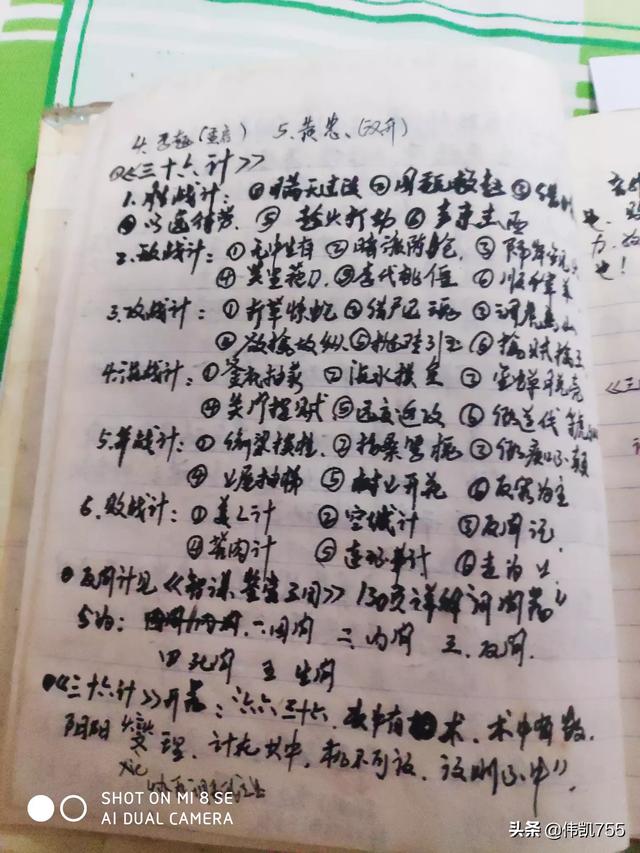 4.马超(孟起) 5.黄忠、(汉升)
《三十六计》
1.胜战计:①瞒天过海②围魏救赵③借
④以逸待劳 ⑤趁火打劫 ⑥声东击西
2.敌战计:①无中生有②暗渡陈仓③隔岸观火
④笑里藏刀⑤李代桃僵⑥顺手牵羊
3.攻战计:①打草惊蛇②借尸还魂③调虎离山
④欲擒故纵⑤抛砖引玉⑥擒贼擒王
4.混战计:①釜底抽薪②浑水摸鱼③金蝉脱壳
④关门捉贼⑤远交近攻⑥假道伐虢
5.并战计:①偷梁换柱②指桑骂槐③假痴不癫
④上屋抽梯⑤树上开花⑥反客为主
6.败战计:①美人计②空城计③反间计
④苦肉计⑤连环计⑥走为上
反间计见《智谋鉴 》130页详解词
5为: 一因间 二、内间 三、反间
四死间 五生间
《三十六计》开 :六六三十六,数中有术,术中有数,
阴阳燮理,计在其中,机不可设,设则不中"
SHOT ON MI 8 SE
AI DUAL CAMERA
头条 @伟凯755
力,
也!